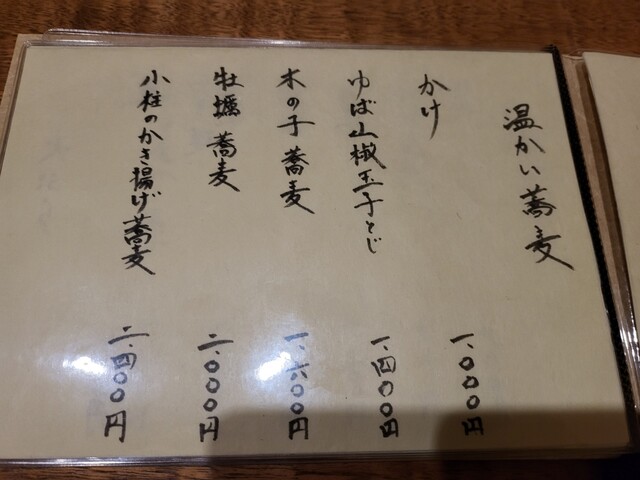 温かい蕎麦
かけ 一、〇〇〇円
ゆば山椒玉子とじ 一、四〇〇円
木の子蕎麦 一、六〇〇円
牡蠣蕎麦 二、〇〇〇円
小柱のかき揚げ蕎麦 二、四〇〇円